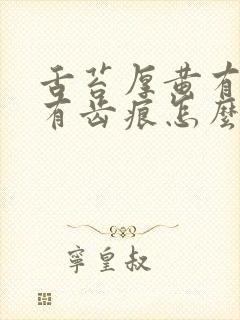 舌苔厚黄有
有齿痕怎麽
寧皇叔